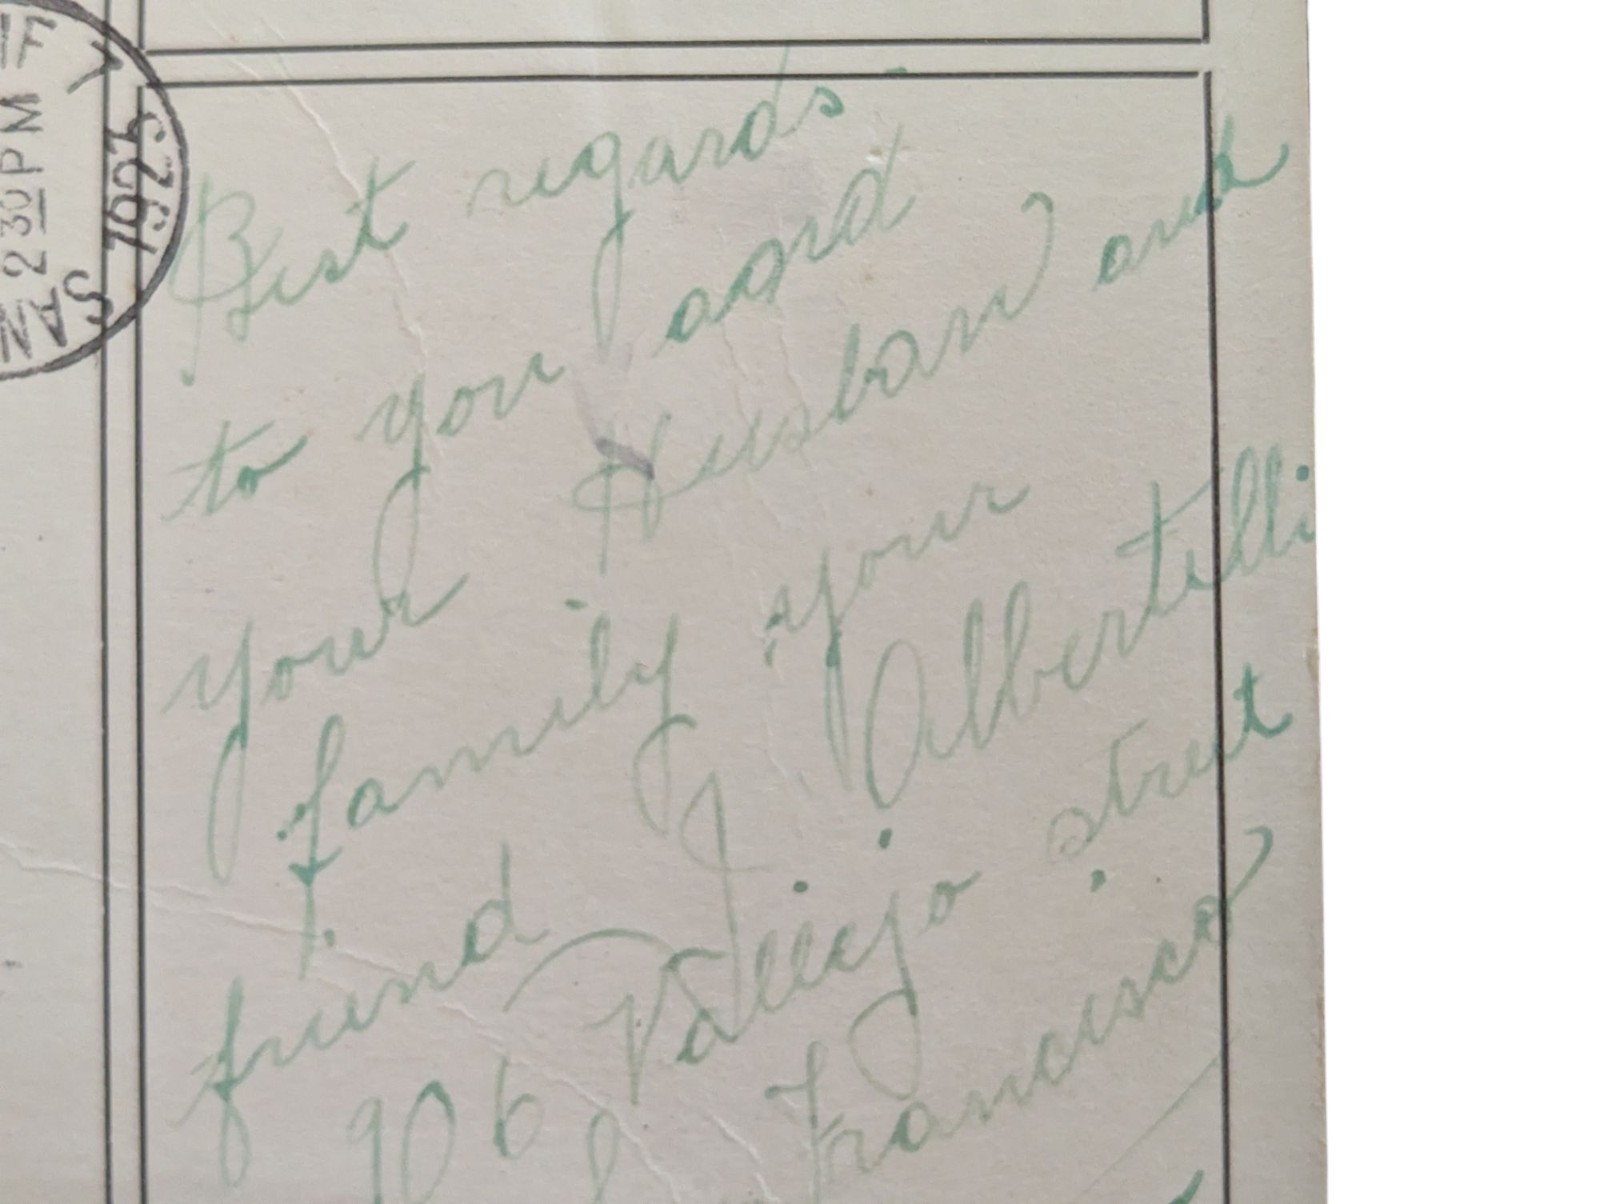 SAN F
2 30 PM
1925
Best regards
to you and
your Husband and
family your
friend J. Albertelli
906 Vallejo street
Francisco